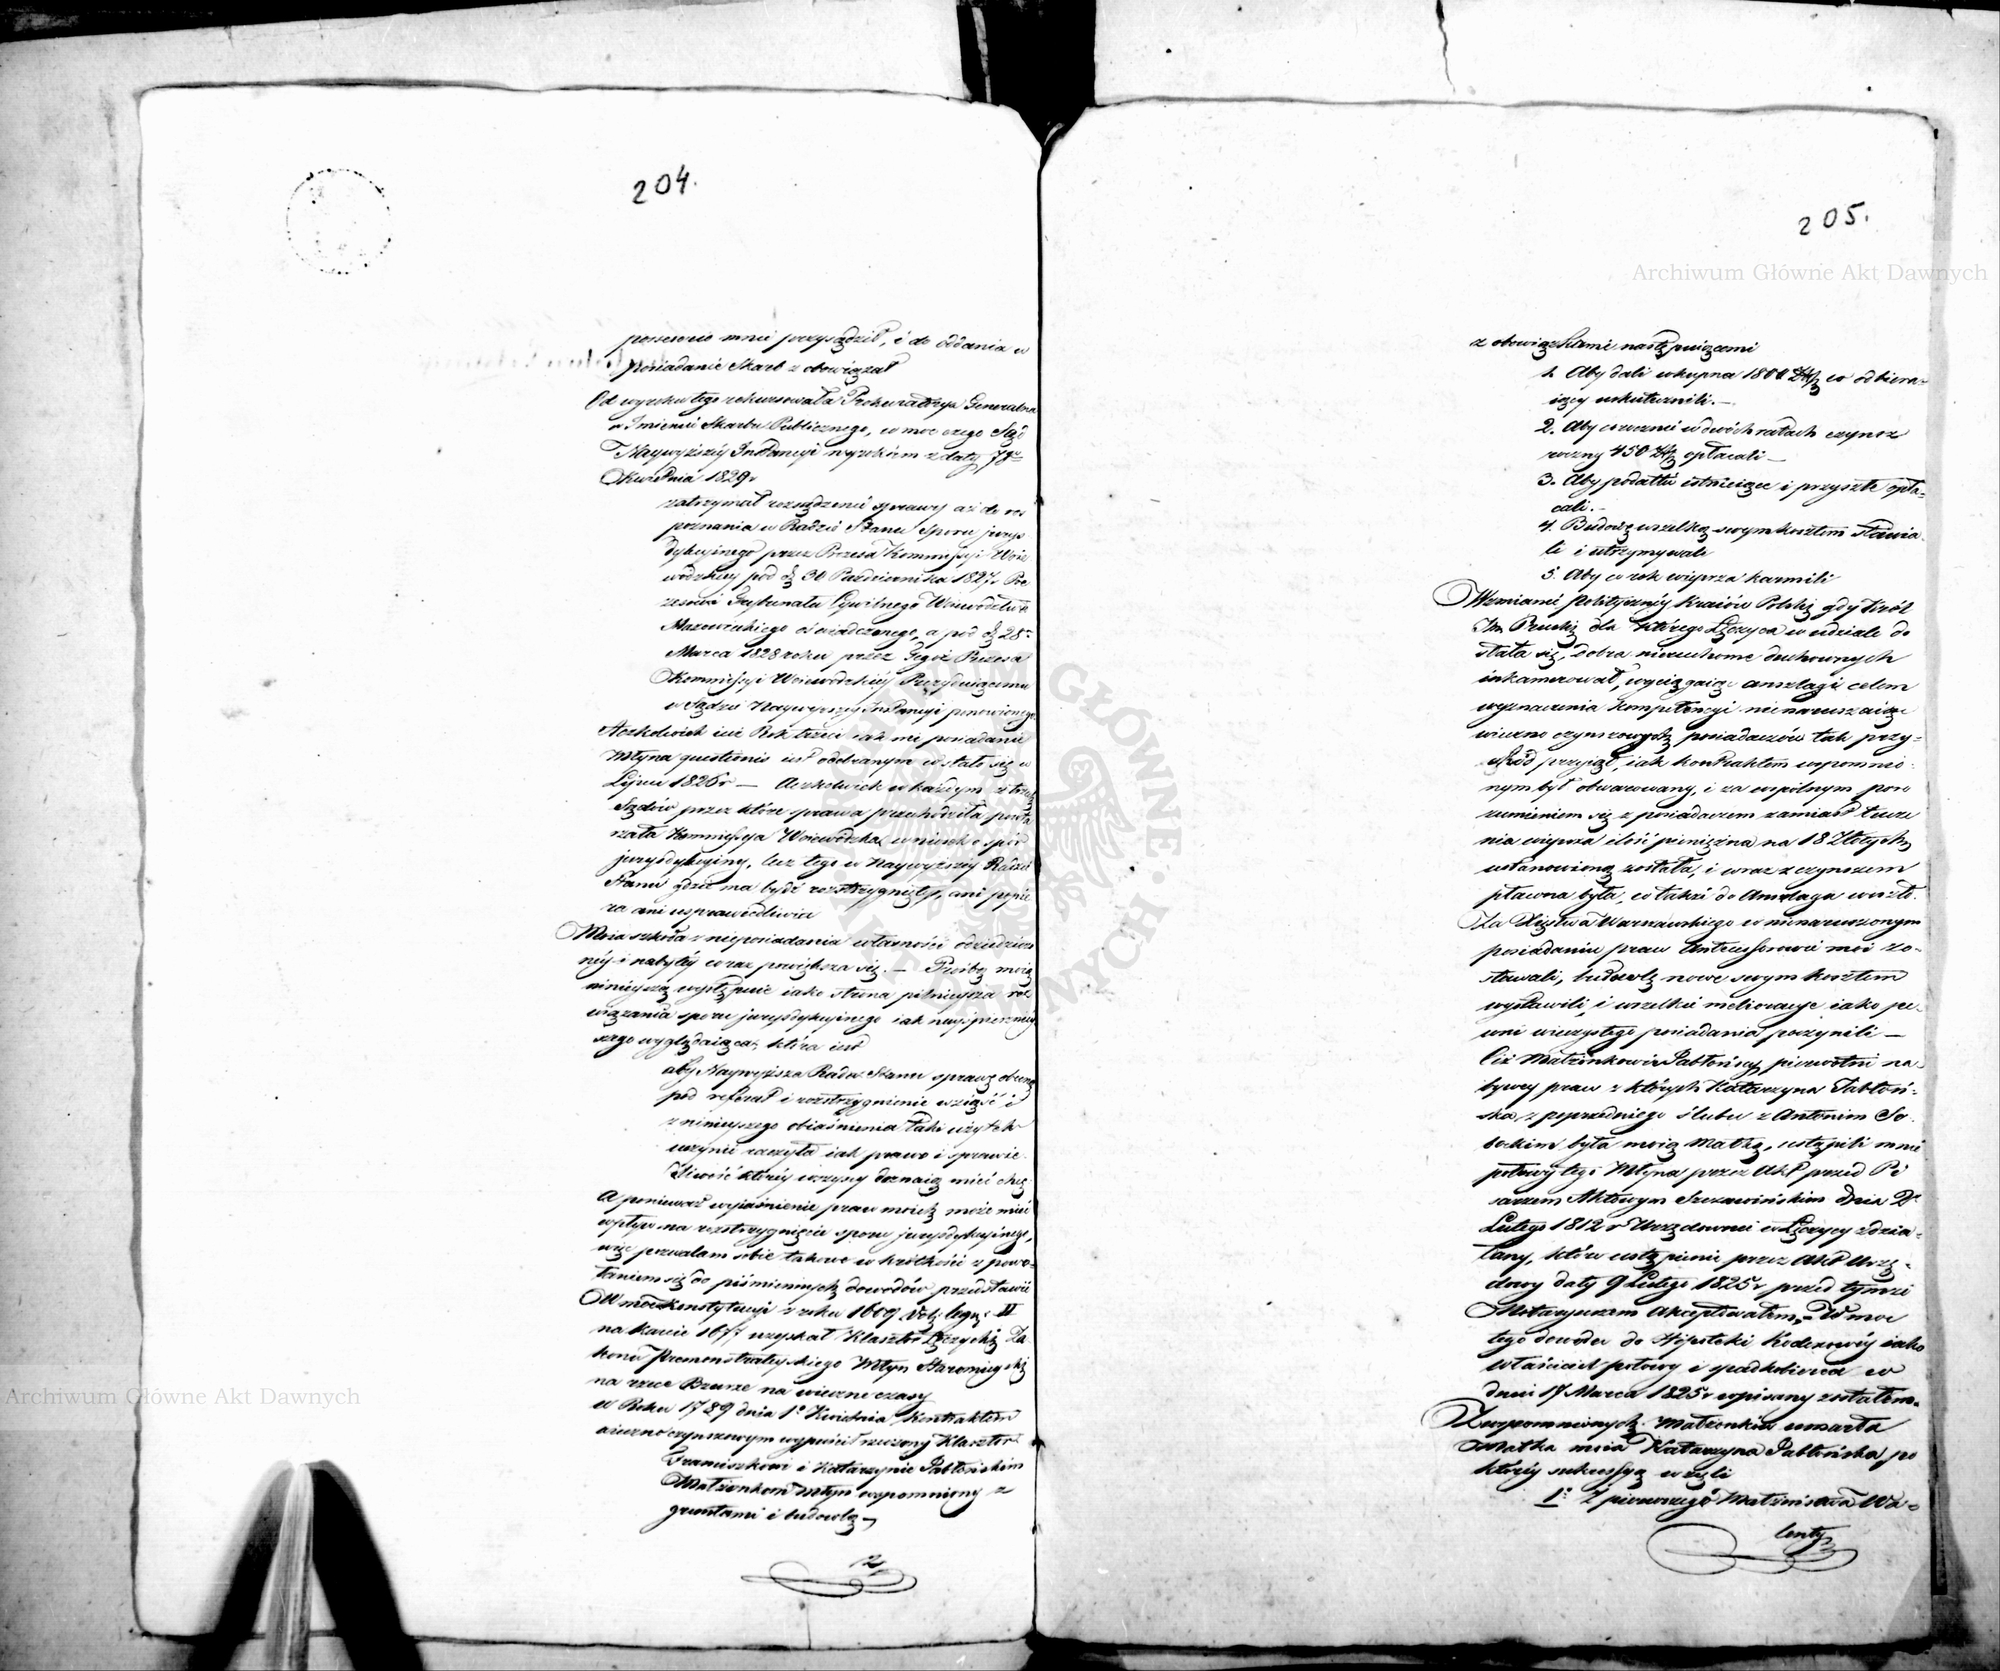 204.
possessio mnie przysądził, i do oddania w
posiadanie Skarb zobowiązał
Od wyroku tego rekursowała Prokuratorya Generalna
w Imieniu Skarbu Publicznego, w moc czego Sąd
Naywyższéy Instancyi wyrokiem z daty
Kwietnia 1829r
zatrzymał rozsądzenie sprawy aż do roz
poznania w Radzie Stanu Sporu jurys
dykcyjnego przez Prezesa Kommissyi Woie
wódzkiey pod d. 30 Października 1827r Pre
zesowi Trybunału Cywilnego Województwa
Mazowieckiego oświadczonego, a pod d. 28
Marca 1828 roku przez Tegoż Prezesa
Kommissyi Woiewódzkiéy Prezyduiącemu
w Sądzie Naywyższéy Instancyi ponowionego
Aczkolwiek iuż Rok trzeci iak mi posiadanie
Młyna questionis iest odebranym co stało się w
Lipcu 1826r — Aczkolwiek w każdym z trzech
Sądów przez które sprawa przechodziła powta
rzała Kommissya Woiewódzka wniosek o spór
jurysdykcyiny, lecz tego w Naywyższéy Radzie
Stanu gdzie ma bydź rozstrzygnięty, ani popie
ra ani usprawiedliwia
Moia szkoda z nieposiadania własności odziedziczo
néy i nabytéy coraz powiększa się. — Prośbę moią
ninieyszą występuie iako strona pilnieysza roz
wiązania sporu jurysdykcyinego iak nayśpieszniey
szego wyglądaiąca, która iest
aby Naywyższa Rada Stanu sprawę obecną
pod referat i rozstrzygnienie wziąść i
z ninieyszego obiaśnienia taki użytek
uczynić raczyła iak prawo i sprawie
dliwość któréy wszyscy doznaią mieć chcą
A ponieważ wyjaśnienie praw moich może mieć
wpływ na rozstrzygnięcie sporu jurysdykcyinego,
więc pozwalam sobie takowe w krótkości z powo-
łaniem się do piśmiennych dowodów przedstawić
W moc Konstytucyi z roku 1609 Vol: legu: II
na karcie 1677 uzyskał Klasztor Łęczycki Za
konu Premonstrateyskiego Młyn Staromieyski
na rzece Bzurze na wieczne czasy
w Roku 1789 dnia 1º Kwietnia Kontraktem
wieczno czynszowym wypuścił rzeczony Klasztor
Franciszkowi i Katarzynie Jabłońskim
Małżonkom Młyn wspomniony z
gruntami i budowlą —
z
205.
z obowiązkami następuiącemi
1. Aby dali wkupna 1800 Złp co odbiera-
iący uskutecznili. —
2. Aby corocznie w dwóch ratach czynsz
roczny 450 Złp opłacali —
3. Aby podatki istnieiące i przyszłe opła-
cali. —
4. Budowę wszelką swym kosztem stawia-
li i utrzymywali
5. Aby co rok wieprza karmili
W zmianie polityczney Kraiów Polski gdy Król
Im Pruski dla którego Łęczyca w udziale do
stała się, dobra nieruchome duchownych
inkamerował, wyciągaiąc anszlagi celem
wyznaczenia kompetencyi nienaruszaiąc
wieczno czynszowych posiadaczów tak przy-
chód przyiął, iak kontraktem wspomnio-
nym był obwarowany, i za wspólnym poro
zumieniem się z posiadaczem zamiast tucze
nia wieprza ilość pieniężna na 18 Złotych
ustanowioną została, i wraz z czynszem
płacona była, co także do Anszlagu weszło.
Za Xięstwa Warszawskiego w nienaruszonym
posiadaniu praw Antecessorowie moi zo-
stawali, budowlę nowe swym kosztem
wystawili, i wszelkie melioracye iako pe-
wni wieczystego posiadania poczynili —
Ciż Małżonkowie Jabłońscy, pierwotni na-
bywcy praw z których Katarzyna Jabłoń-
ska, z poprzedniego ślubu z Antonim So-
bockim była moią Matką, ustąpili mnie
połowy tego Młyna przez Akt przed Pi-
sarzem Aktowym Szczawińskim dnia
Lutego 1812r Urzędownie w Łęczycy zdzia-
łany, które ustąpienie przez Akt Urzę-
dowy daty 9 Lutego 1825r przed tymże
Notaryuszem Akceptowałem. — W moc
tego dowodu do Hipoteki Kodexowéy iako
właściciel połowy i spadkobierca w
dniu 17 Marca 1825r wpisany zostałem.
Z wspomnionych Małżonków umarła
Matka moia Katarzyna Jabłońska, po
któréy sukcessyą wzięli
1º Z pierwszego Małżeństwa Wa-
lenty
Archiwum Główne Akt Dawnych
Archiwum Główne Akt Dawnych